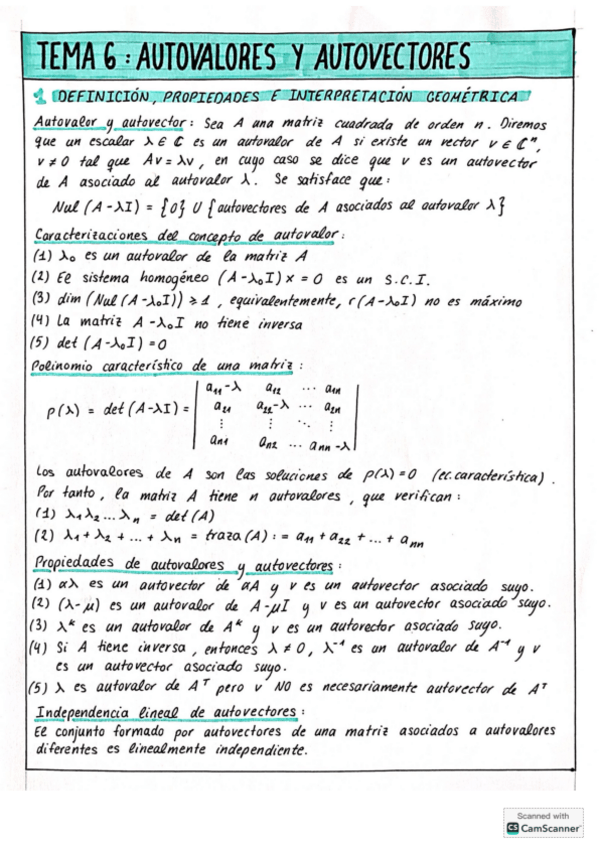 TEMA 6 : AUTOVALORES Y AUTOVECTORES
1 DEFINICIÓN, PROPIEDADES E INTERPRETACIÓN GEOMÉTRICA
Autovalor y autovector : Sea A una matriz cuadrada de orden n. Diremos
que un escalar λ ∈ ℂ es un autovalor de A si existe un vector v ∈ ℂⁿ,
v ≠ 0 tal que Av = λv, en cuyo caso se dice que v es un autovector
de A asociado al autovalor λ. Se satisface que :
Nul (A - λI) = {0} U {autovectores de A asociados al autovalor λ}
Caracterizaciones del concepto de autovalor :
(1) λ₀ es un autovalor de la matriz A
(2) El sistema homogéneo (A - λ₀I) x = 0 es un S.C.I.
(3) dim (Nul (A - λ₀I)) ≥ 1 , equivalentemente, r (A - λ₀I) no es máximo
(4) La matriz A - λ₀I no tiene inversa
(5) det (A - λ₀I) = 0
Polinomio característico de una matriz :
a₁₁ - λ a₁₂ ... a₁ₙ
p(λ) = det (A - λI) = a₂₁ a₂₂ - λ ... a₂ₙ
⋮ ⋮ ⋱ ⋮
aₙ₁ aₙ₂ ... aₙₙ - λ
Los autovalores de A son las soluciones de p(λ) = 0 (ec. característica) .
Por tanto , la matriz A tiene n autovalores , que verifican :
(1) λ₁ λ₂ ... λₙ = det (A)
(2) λ₁ + λ₂ + ... + λₙ = traza (A) : = a₁₁ + a₂₂ + ... + aₙₙ
Propiedades de autovalores y autovectores :
(1) αλ es un autovector de αA y v es un autovector asociado suyo.
(2) (λ - μ) es un autovalor de A - μI y v es un autovector asociado suyo.
(3) λᵏ es un autovalor de Aᵏ y v es un autovector asociado suyo.
(4) Si A tiene inversa , entonces λ ≠ 0 , λ⁻¹ es un autovalor de A⁻¹ y v
es un autovector asociado suyo.
(5) λ es autovalor de Aᵀ pero v NO es necesariamente autovector de Aᵀ
Independencia lineal de autovectores :
El conjunto formado por autovectores de una matriz asociados a autovalores
diferentes es linealmente independiente.
Scanned with
CS CamScanner